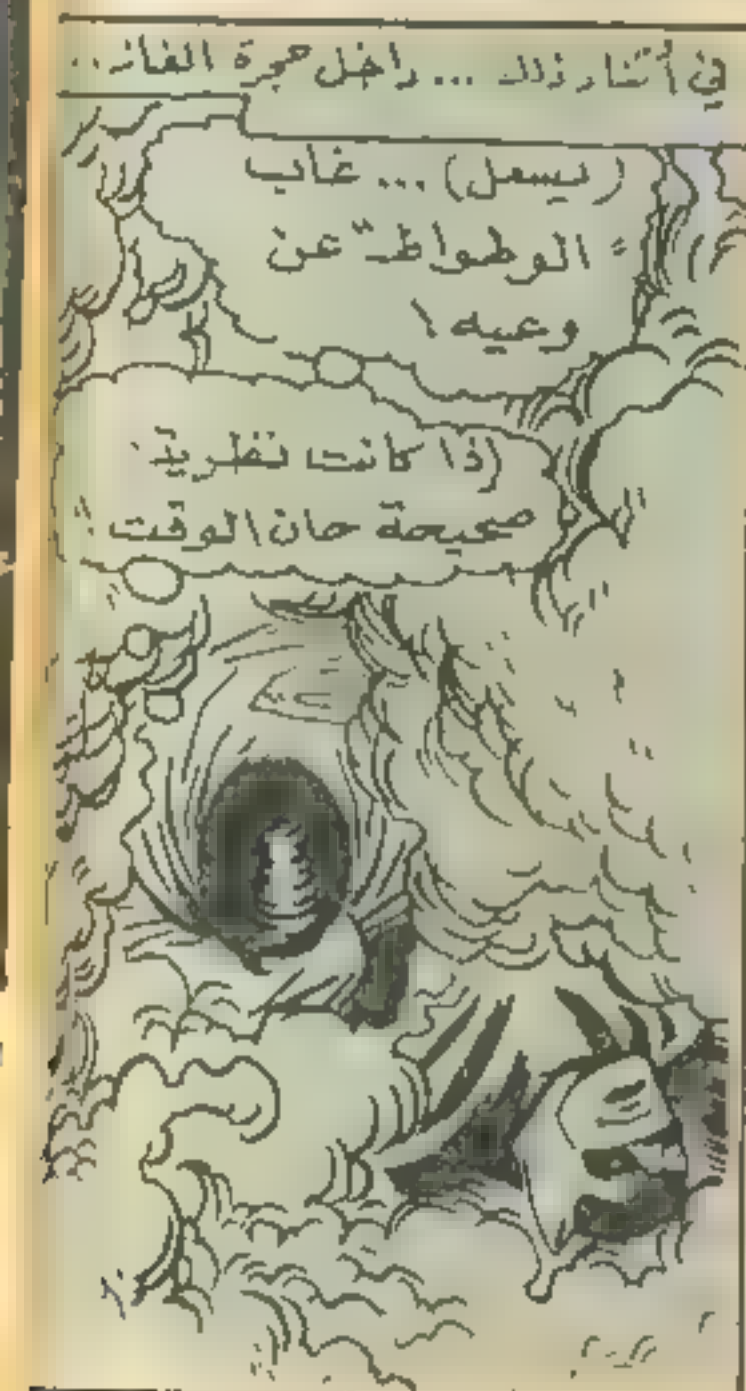 في أثناء ذلك ... داخل حجرة الغاز..
(يسعل) ... غاب
"الوطواط" عن
وعيه!
إذا كانت نظريتي
صحيحة حان الوقت!